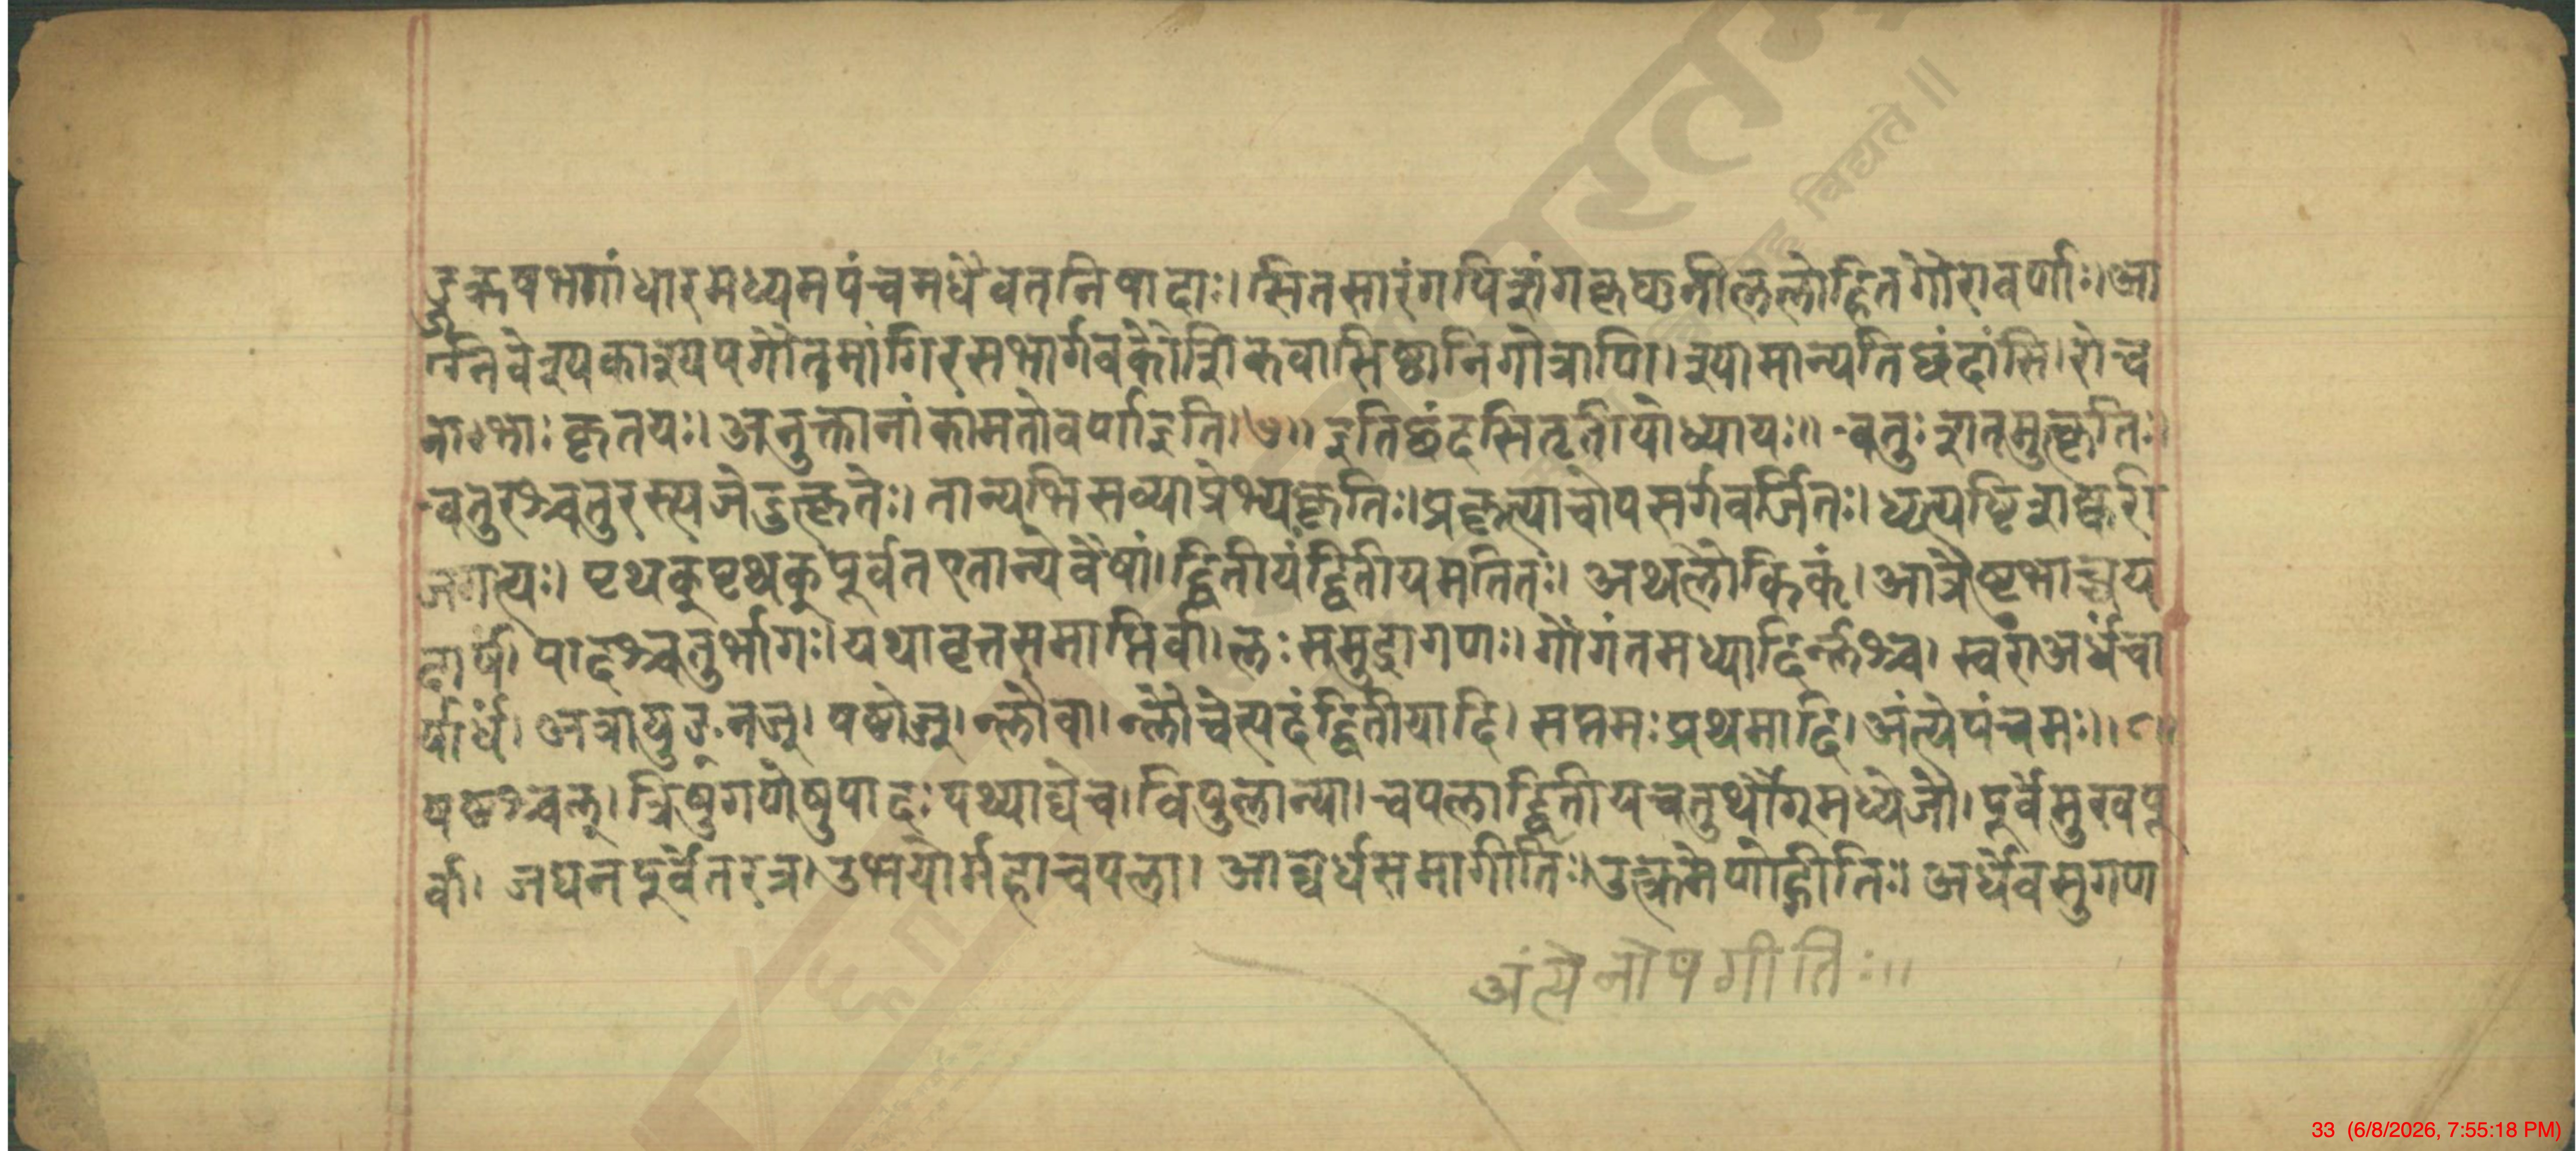 ड्जऋषभगांधारमध्यमपंचमधैवतनिषादाः। सितसारंगपिशंगकृष्णनीललोहितगौरावर्णाः। आ
ग्निवेश्यकाश्यपगौतमांगिरसभार्गवकौशिकवासिष्ठानिगोत्राणि। श्यामान्यतिछंदांसि। रोच
नाभाः कृतयः। अनुक्तानां कामतोवर्णाइति॥७॥ इतिछंदसितृतीयोध्यायः॥ चतुःशतमुत्कृतिः।
चतुरश्चतुरस्त्यजेदुत्कृतेः। तान्यभिसंव्याप्रेभ्यकृतिः। प्रकृत्याचोपसर्गवर्जितः। धृत्यष्टिशक्वरी
जगत्यः। पृथक्पृथक्पूर्वतएतान्येवैषां। द्वितीयंद्वितीयमतितः। अथलौकिकं। आत्रैष्टुभाच्चय
दार्षं। पादश्चतुर्भागः। यथावृत्तसमाप्तिर्वा। लः समुद्रागणः। गौगंतमध्यादिर्न्लश्च। स्वराअर्धंचा
र्यार्धं। अत्रायुङ्नज्। षष्ठोज्। न्लौवा। न्लौचेत्पदंद्वितीयादि। सप्तमः प्रथमादि। अंत्येपंचमः॥८॥
षष्ठश्चल्। त्रिषुगणेषुपादः पथ्याद्येच। विपुलान्या। चपलाद्वितीयचतुर्थौगमध्येजौ। पूर्वेमुखपू
र्वा। जघनपूर्वेतरत्र। उभयोर्महाचपला। आद्यर्धसमागीतिः। उत्क्रमेणोद्गीतिः। अर्धेवसुगण
अंत्येनोपगीतिः॥
33 (6/8/2026, 7:55:18 PM)
विद्यते॥